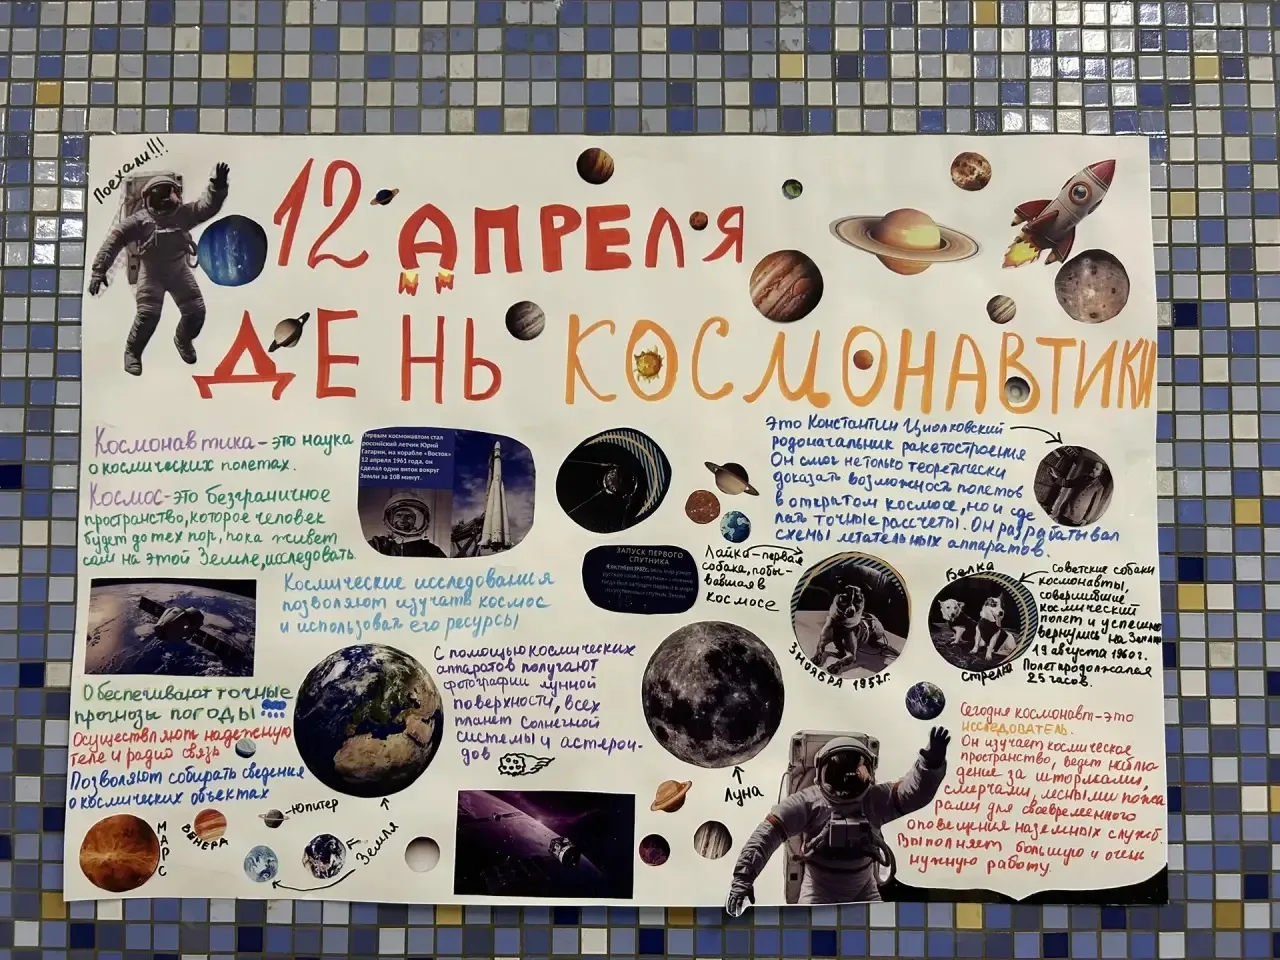 Поехали!!!
12 АПРЕЛЯ
ДЕНЬ КОСМОНАВТИКИ
Космонавтика - это наука
о космических полетах.
Космос - это безграничное
пространство, которое человек
будет до тех пор, пока живет
сам на этой Земле, исследовать
Первым космонавтом стал
российский летчик Юрий
Гагарин, на корабле «Восток»
12 апреля 1961 года, он
сделал один виток вокруг
Земли за 108 минут.
Это Константин Циолковский
родоначальник ракетостроения
Он смог не только теоретически
доказать возможность полетов
в открытом космосе, но и сде
лать точные рассчеты. Он разрабатывал
схемы летательных аппаратов.
ЗАПУСК ПЕРВОГО
СПУТНИКА
4 октября 1957г.
Лайка - первая
собака, побы-
вавшая в
космосе
3 НОЯБРЯ 1957г.
Белка
Стрелка
Советские собаки
космонавты,
совершившие
космический
полет и успешно
вернулись на Землю
19 августа 1960г.
Полет продолжался
25 часов.
Космические исследования
позволяют изучать космос
и использовать его ресурсы
Обеспечивают точные
прогнозы погоды
Осуществляют надежную
теле и радио связь
Позволяют собирать сведения
о космических объектах
С помощью космических
аппаратов получают
фотографии лунной
поверхности, всех
планет Солнечной
системы и астерои-
дов
Луна
Сегодня космонавт - это
исследователь.
Он изучает космическое
пространство, ведет наблю-
дение за штормами,
смерчами, лесными пожа
рами для своевременного
оповещения наземных служб.
Выполняет большую и очень
нужную работу.
МАРС
ВЕНЕРА
Юпитер
Земля